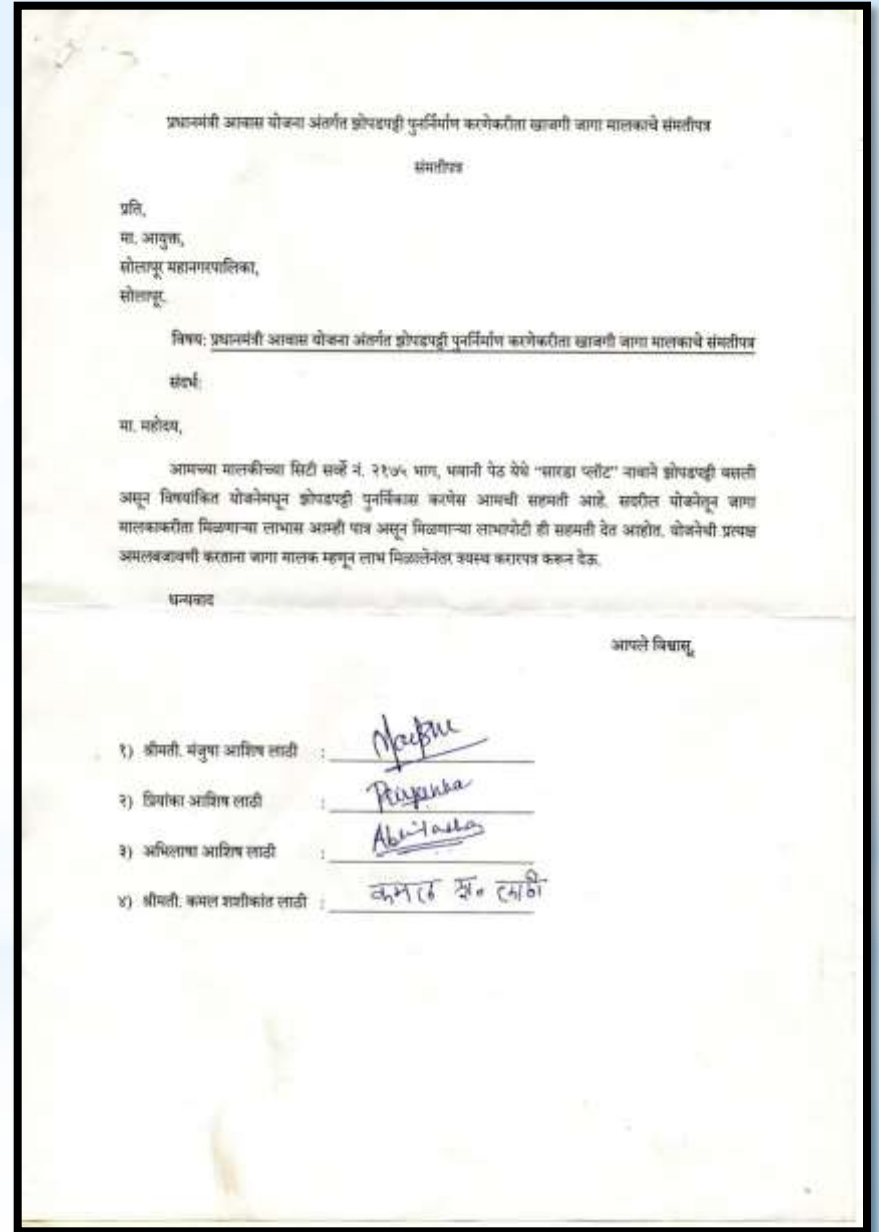 प्रधानमंत्री आवास योजना अंतर्गत झोपडपट्टी पुनर्निर्माण करणेकरीता खाजगी जागा मालकाचे संमतीपत्र
संमतीपत्र
प्रति,
मा. आयुक्त,
सोलापूर महानगरपालिका,
सोलापूर.
विषय: प्रधानमंत्री आवास योजना अंतर्गत झोपडपट्टी पुनर्निर्माण करणेकरीता खाजगी जागा मालकाचे संमतीपत्र
संदर्भ:
मा. महोदय,
आमच्या मालकीच्या सिटी सर्व्हे नं. २१७५ भाग, भवानी पेठ येथे “सारडा प्लॉट” नावाने झोपडपट्टी वसली
असून विषयांकित योजनेमधून झोपडपट्टी पुनर्विकास करणेस आमची सहमती आहे. सदरील योजनेतून जागा
मालकाकरीता मिळणाऱ्या लाभास आम्ही पात्र असून मिळणाऱ्या लाभापोटी ही सहमती देत आहोत. योजनेची प्रत्यक्ष
अमलबजावणी करताना जागा मालक म्हणून लाभ मिळालेनंतर त्रयस्थ करारपत्र करून देऊ.
धन्यवाद
आपले विश्वासू,
१) श्रीमती. मंजुषा आशिष लाठी :
२) प्रियांका आशिष लाठी : Priyanka
३) अभिलाषा आशिष लाठी : Abhilasha
४) श्रीमती. कमल शशीकांत लाठी : कमल श. लाठी